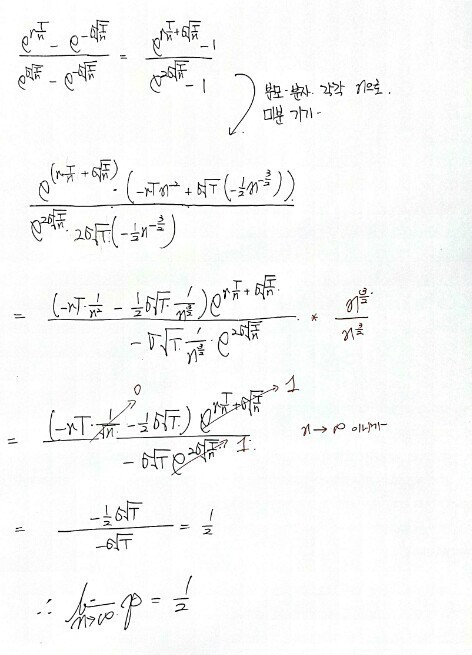 (e^{r\frac{T}{n}} - e^{-σ\sqrt{\frac{T}{n}}}) / (e^{σ\sqrt{\frac{T}{n}}} - e^{-σ\sqrt{\frac{T}{n}}}) = (e^{r\frac{T}{n} + σ\sqrt{\frac{T}{n}}} - 1) / (e^{2σ\sqrt{\frac{T}{n}}} - 1)
분모·분자 각각 n으로.
미분 가기-
(e^{(r\frac{T}{n} + σ\sqrt{\frac{T}{n}})} · (-rTn^{-2} + σ\sqrt{T}(-\frac{1}{2}n^{-\frac{3}{2}}))) / (e^{2σ\sqrt{\frac{T}{n}}} · 2σ\sqrt{T}(-\frac{1}{2}n^{-\frac{3}{2}}))
= ((-rT·\frac{1}{n^2} - \frac{1}{2}σ\sqrt{T}·\frac{1}{n^{\frac{3}{2}}})e^{r\frac{T}{n} + σ\sqrt{\frac{T}{n}}}) / (-σ\sqrt{T}·\frac{1}{n^{\frac{3}{2}}}·e^{2σ\sqrt{\frac{T}{n}}}) * \frac{n^{\frac{3}{2}}}{n^{\frac{3}{2}}}
0 1
= ((-rT·\frac{1}{\sqrt{n}} - \frac{1}{2}σ\sqrt{T})e^{r\frac{T}{n} + σ\sqrt{\frac{T}{n}}}) / (-σ\sqrt{T}e^{2σ\sqrt{\frac{T}{n}}}) n→∞ 이니까
1
= (-\frac{1}{2}σ\sqrt{T}) / (-σ\sqrt{T}) = \frac{1}{2}
∴ \lim_{n→∞} p = \frac{1}{2}